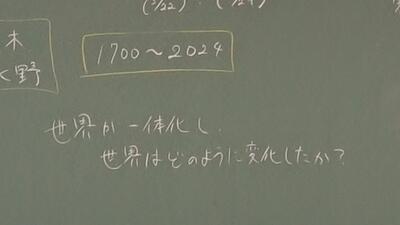 (3/22)
木
野
1700〜2024
世界が一体化し、
世界はどのように変化したか?